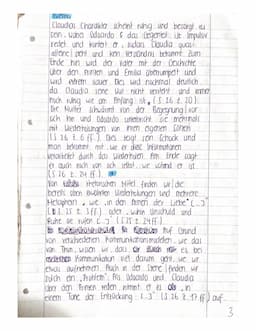 Claudias Charakter scheint ruhig und besorgt zu
sein, wobei Eduardo das Gegenteil ist. Impulsiv
redet und kontert er, sodass Claudia quasi
und kein Verständnis bekommt. Zum
Ende hin wird der Vater mit der Geschichte
über den Armen und Emilia überrumpelt und
wird extrem sauer. Dies wird nochmal deutlich
da Claudia seine Wut nicht versteht und immer
noch ruhig wie am Anfang ist. (S.26 Z. 20)
Die Mutter schwärmt von der Begegnung vor
sich hin und Eduardo unterbricht sie mehrmals
mit Wiederholungen von ihren eigenen
(S. 26 Z. 6 ff). Dies zeigt den Schock und
man bekommt mit wie er diese Informationen
verarbeitet durch das Wiederholen. Am Ende sagt
er auch noch von sich selbst, wie wütend er ist.
(S. 26 Z. 24 ff).
Von rhetorischen Mittel finden wir die
bereits oben erwähnten Wiederholungen und mehrere
Metaphern, wie „in den Armen der Liebe" (...)
(S. 25 Z. 1 ff) oder „wohin Unschuld und
Ruhe sie rufen (...)" (S. 25 Z. 24 ff).
Auf Grund
von verschiedenen Kommunikationsmodellen, wie das
von Thun, wissen wir, dass es bei
Kommunikation viel darum geht, wie wir
etwas aufnehmen. Auch in der Szene finden wir
solch ein „Problem". Als Eduardo und Claudia
über den Armen reden, nimmt er es als „in
einem Tone der Entzückung (...)" (S. 26 Z. 17) auf.
3